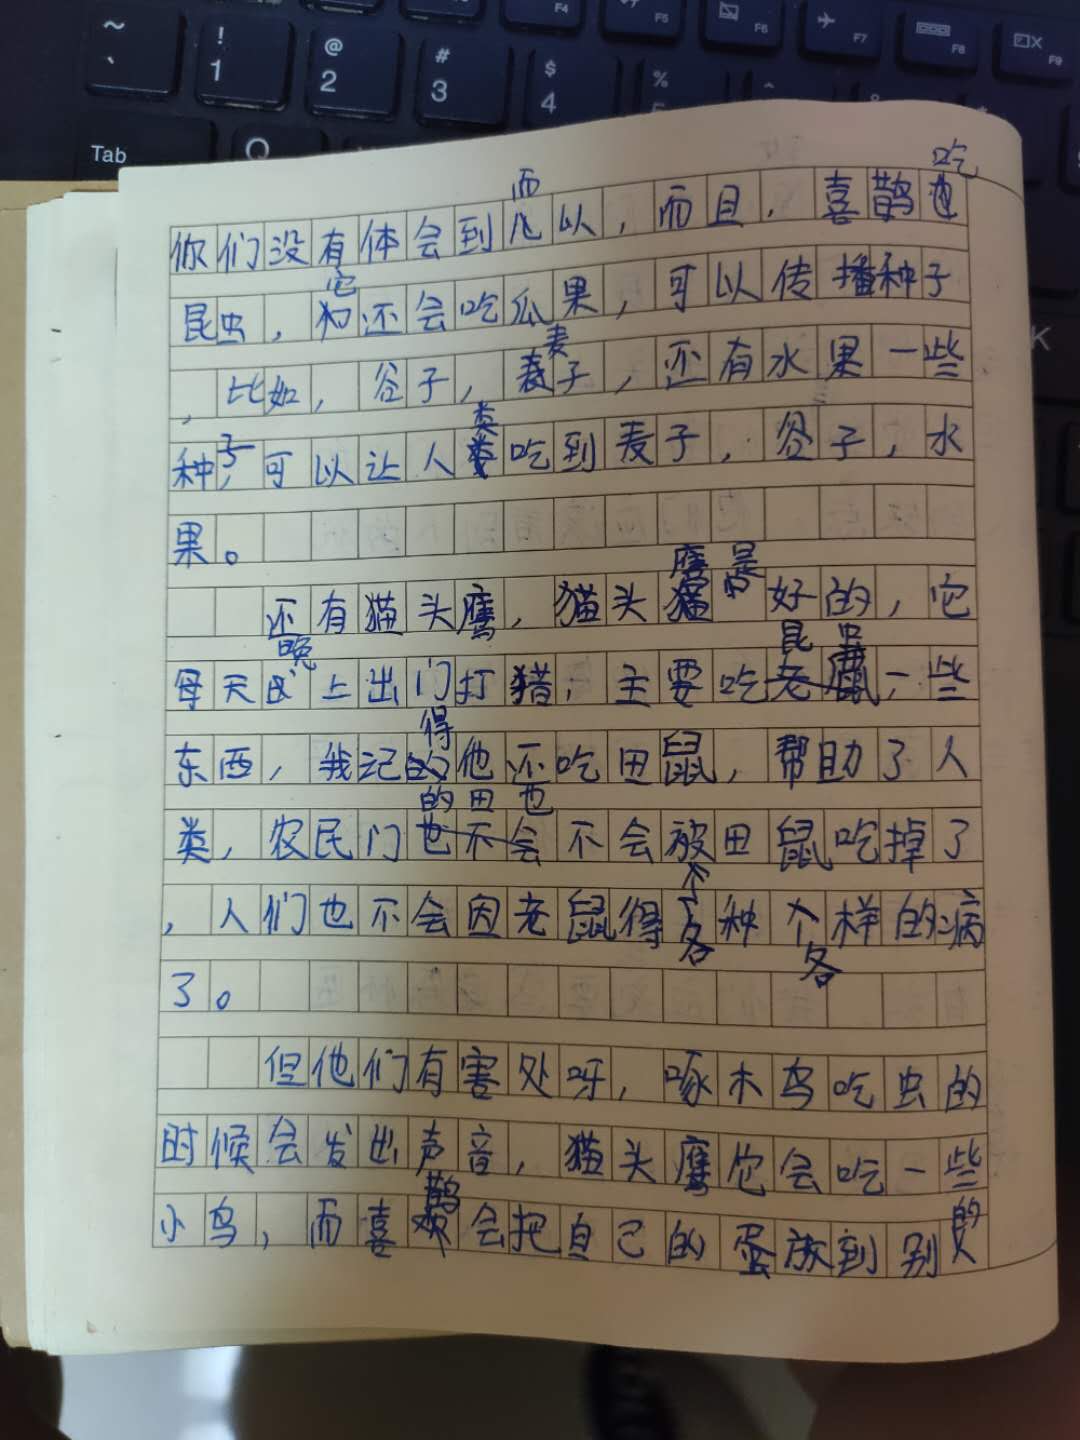 ~ ` ! 1 @ 2 # 3 $ 4 %
F4 F5 F6 F7 F8 F9
Tab Q K
你们没有体会到而以，而且，喜鹊吃
昆虫，它还会吃瓜果，可以传播种子
，比如，谷子，麦子，还有水果一些
种子，可以让人类吃到麦子，谷子，水
果。
还有猫头鹰，猫头鹰是好的，它
每天晚上出门打猎，主要吃昆虫一些
东西，我记得他还吃田鼠，帮助了人
类，农民门的田也不会被田鼠吃掉了
，人们也不会因老鼠得各种各样的病
了。
但他们有害处呀，啄木鸟吃虫的
时候会发出声音，猫头鹰它会吃一些
小鸟，而喜鹊会把自己的蛋放到别的